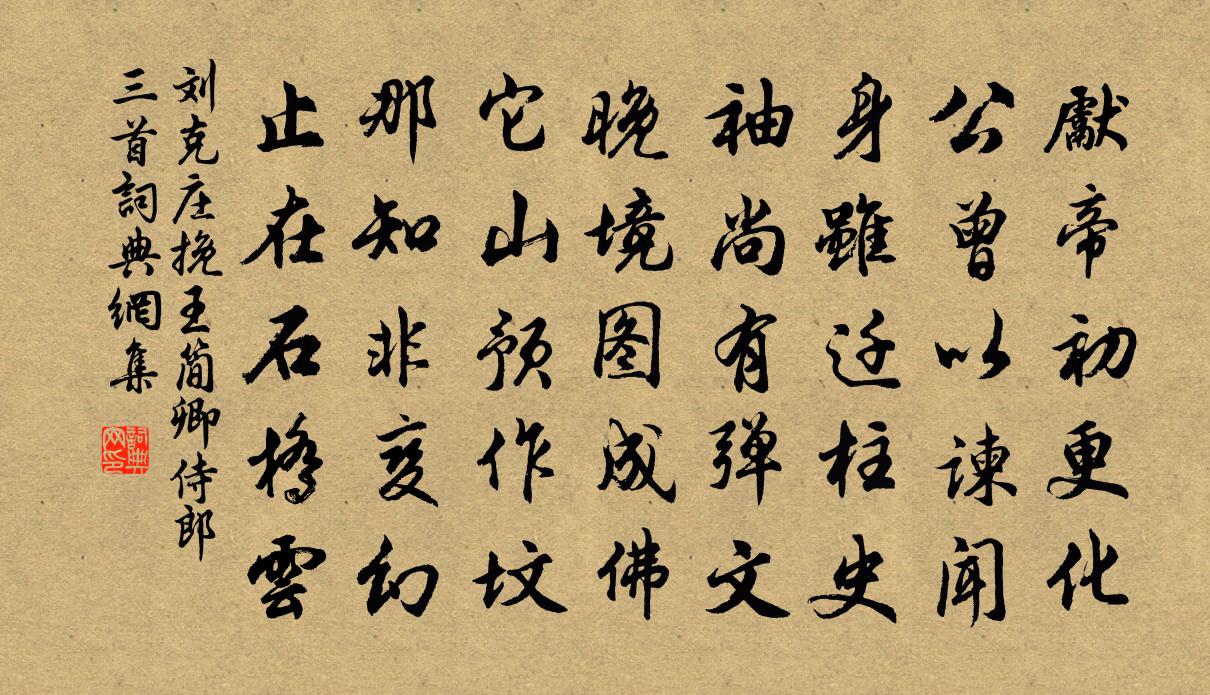 獻帝初更化
公曾以諫聞
身雖迁柱史
袖尚有弹文
晩境图成佛
它山预作坟
那知非变幻
止在石桥雲
刘克庄挽王简卿侍郎
三首詞典網集
詞典网印